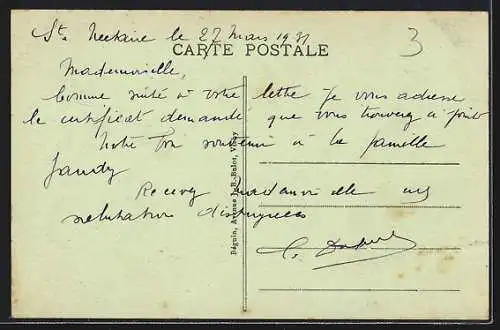 Ste Nectaire le 27 Mars 1931
CARTE POSTALE
3
Mademoiselle,
Comme suite à votre lettre je vous adresse
le certificat demandé que vous trouverez ci joint
Notre bon souvenir à la famille
Jandy
Recevez Mademoiselle mes
salutations distinguées
Béguin, Avenue J.-B.-Bulot, Vichy